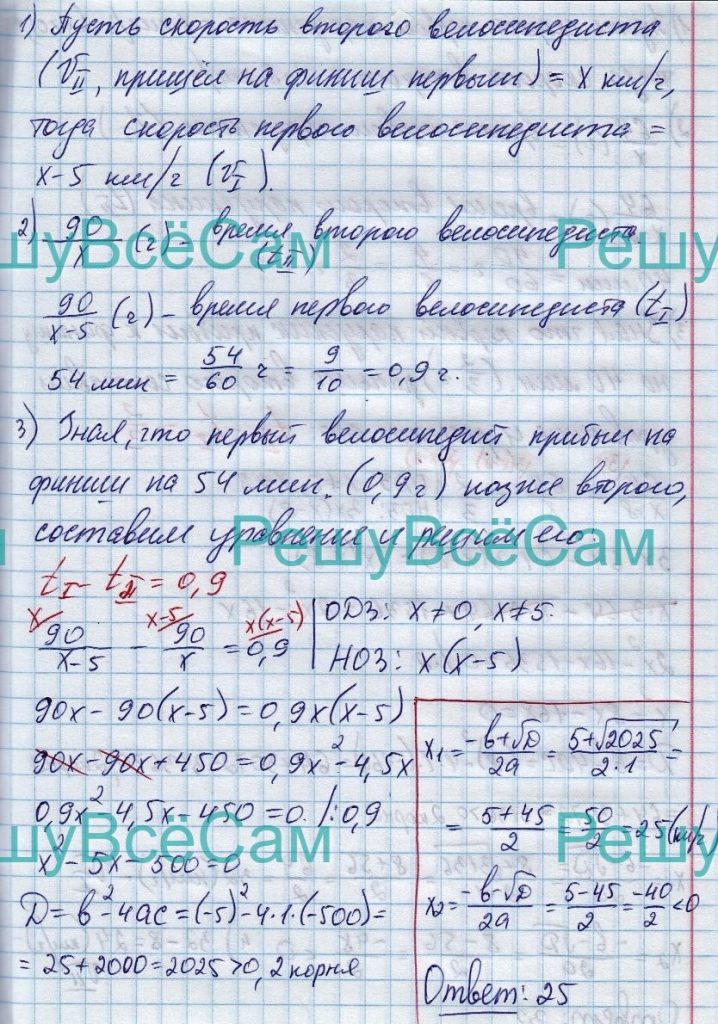 1) Пусть скорость второго велосипедиста
(V_II, пришёл на финиш первым) = x км/ч,
тогда скорость первого велосипедиста =
x-5 км/ч (V_I).
2) 90/x (ч) - время второго велосипедиста.
(t_II)
РешуВсёСам РешуВсёСам
90/(x-5) (ч) - время первого велосипедиста (t_I)
54 мин = 54/60 ч = 9/10 = 0,9 ч.
3) Зная, что первый велосипедист прибыл на
финиш на 54 мин. (0,9 ч) позже второго,
составим уравнение и решим его:
РешуВсёСам
t_I - t_II = 0,9
x x-5 x(x-5)
90/(x-5) - 90/x = 0,9
ОДЗ: x≠0, x≠5.
НОЗ: x(x-5)
90x - 90(x-5) = 0,9x(x-5)
90x - 90x + 450 = 0,9x² - 4,5x
0,9x² - 4,5x - 450 = 0. /:0,9
РешуВсёСам РешуВсёСам
x² - 5x - 500 = 0
D = b² - 4ac = (-5)² - 4·1·(-500) =
= 25 + 2000 = 2025 > 0, 2 корня
x₁ = (-b+√D)/2a = (5+√2025)/(2·1) =
= (5+45)/2 = 50/2 = 25 (км/ч)
x₂ = (-b-√D)/2a = (5-45)/2 = -40/2 < 0
Ответ: 25